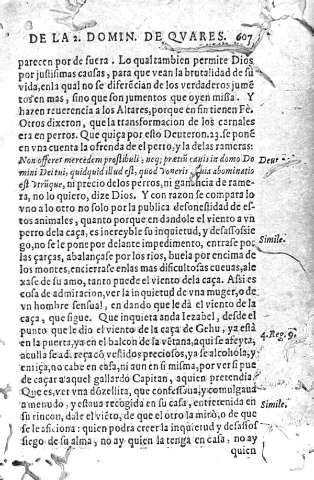 DE LA 2. DOMIN. DE QVARES. 607
parecen por de fuera. Lo qual tambien permite Dios
por justissimas causas, para que vean la brutalidad de su
vida, en la qual no se diferēcian de los verdaderos jumē
tos en mas, sino que son jumentos que oyen missa. Y
hazen reuerencia a los Altares, porque en fin tienen Fè.
Otros dixeron, que la transformacion de los carnales
era en perros. Que quiça por esso Deuteron. 23. se ponē
en vna cuenta la ofrenda de el perro, y la de las rameras:
Non offeret mercedem prostibuli, neq; pretiū canis in domo Do
mini Dei tui, quidquid illud est, quod voueris, quia abominatio
est vtrūque, ni precio de los perros, ni ganancia de rame-
ra, no lo quiero, dize Dios. Y con razon se compara lo
vno a lo otro no solo por la publica desonestidad de es-
tos animales, quanto porque en dandole el viento a vn
perro de la caça, es increyble su inquietud, y desassossie
go, no se le pone por delante impedimento, entrase por
las çarças, abalançase por los rios, buela por encima de
los montes, encierrase en las mas dificultosas cueuas, ale
xase de su amo, tanto puede el viento de la caça. Assi es
cosa de admiracion, ver la inquietud de vna muger, o de
vn hombre sensual, en dando que le dà el viento de la
caça, que sigue. Que inquieta anda Iezabel, desde el
punto que le dio el viento de la caça de Gehu, ya està
en la puerta, ya en el balcon de la vētana, aqui se afeyta,
aculla se adereça cō vestidos preciosos, ya se alcohola, y
entiça, no cabe en casa, ni aun en si misma, por ver si pue
de caçar a aquel gallardo Capitan, a quien pretendia
Que es, ver vna dōzellita, que confessaua, y comulgaua
a menudo, y estaua recogida en su casa, entretenida en
su rincon, dale el viēto, de que el otro la mirò, o de que
se le aficiona: quien podra creer la inquietud y desassos
siego de su alma, no ay quien la tenga en casa, no ay
quien
Deut
Simile.
4. Reg. 9.
Simile.